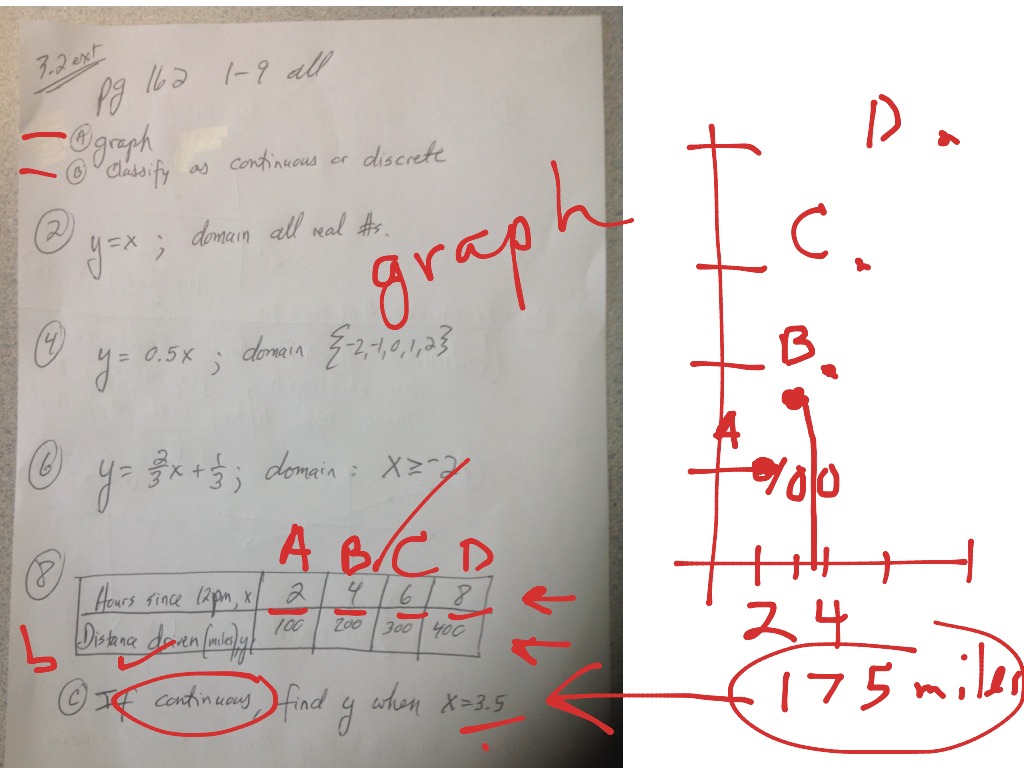 3.2 ext
pg 162 1-9 all
Ⓐ graph
Ⓑ Classify as continuous or discrete
② y=x ; domain all real #s.
graph
④ y = 0.5x ; domain {-2,-1,0,1,2}
⑥ y = 2/3 x + 1/3 ; domain : X ≥ -2
A B C D
⑧ Hours since 12pm, x 2 4 6 8
Distance driven (miles), y 100 200 300 400
b
Ⓒ If continuous, find y when x=3.5
D
C
B
A
100
2 4
175 miles